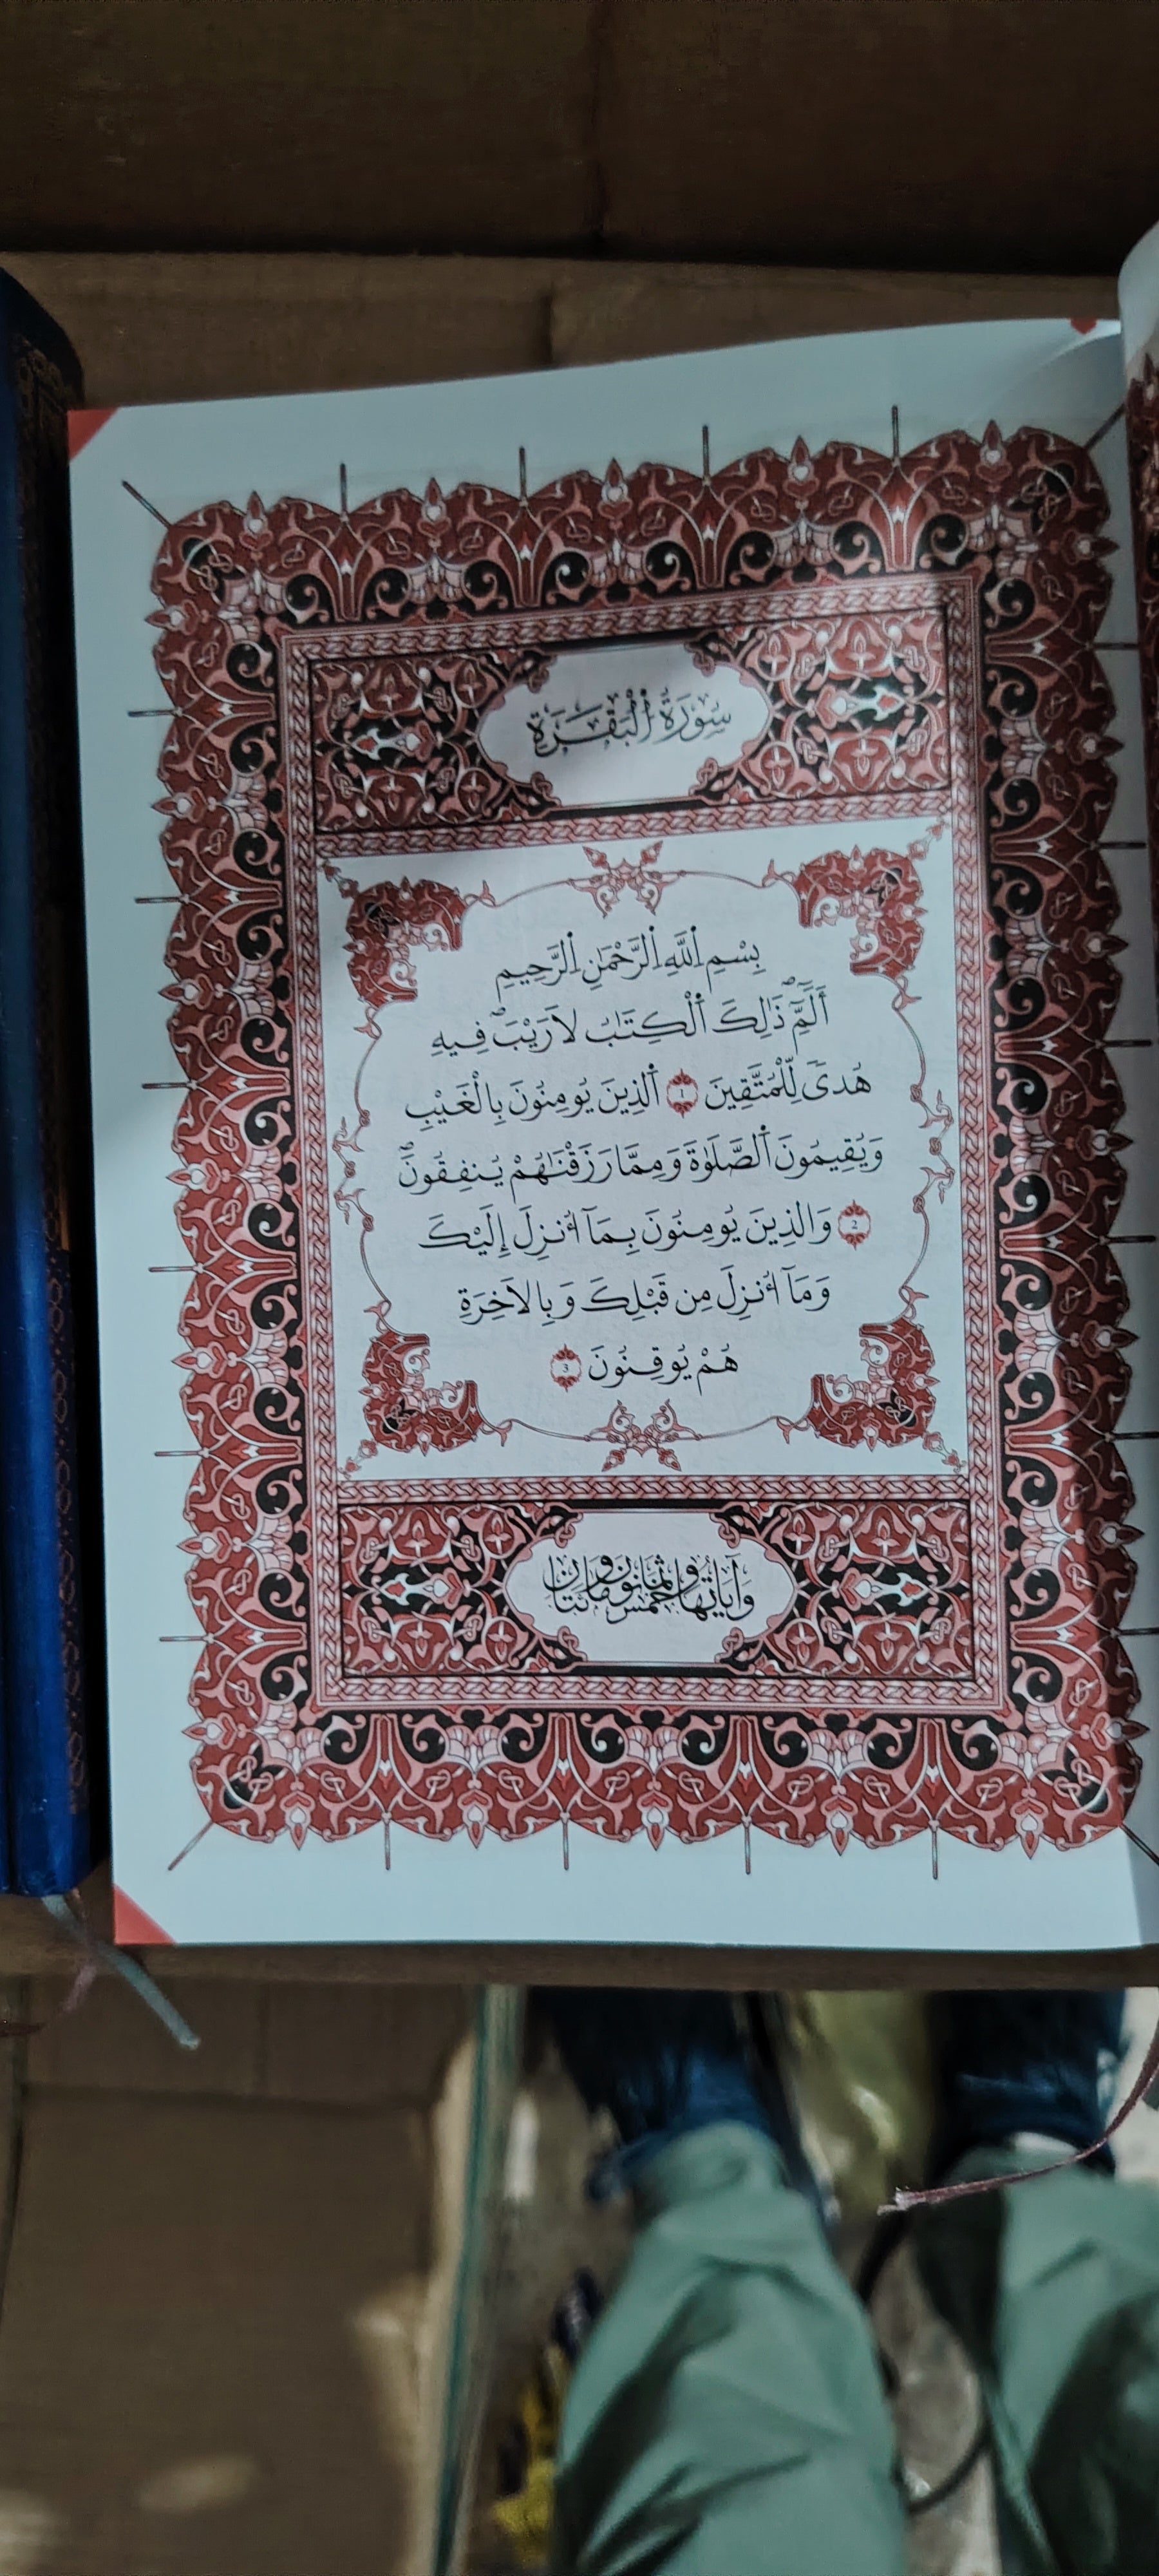 سُورَةُ اُ۬لْبَقَرَةِ
بِسْمِ اِ۬للَّهِ اِ۬لرَّحْمَٰنِ اِ۬لرَّحِيمِ
أَلَٓمِّٓۖ ذَٰلِكَ اَ۬لْكِتَٰبُ لَا رَيْبَۖ فِيهِ
هُدىٗ لِّلْمُتَّقِينَ 1 اَ۬لذِينَ يُومِنُونَ بِالْغَيْبِ
وَيُقِيمُونَ اَ۬لصَّلَوٰةَ وَمِمَّا رَزَقْنَٰهُمْ يُنفِقُونَۖ
2 وَالذِينَ يُومِنُونَ بِمَآ أُنزِلَ إِلَيْكَ
وَمَآ أُنزِلَ مِن قَبْلِكَ وَبِالَاخِرَةِ
هُمْ يُوقِنُونَ 3
وَآيَاتُهَا خَمْسٌ وَثَمَانُونَ وَمِائَتَانِ